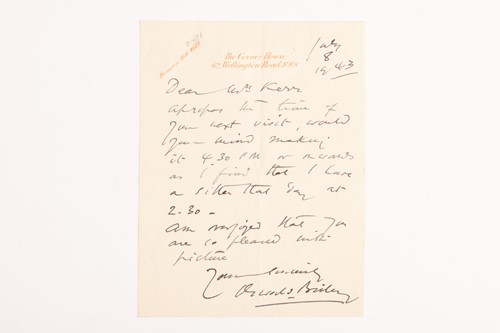 The Corner House
62, Wellington Road, N.W.8.
July
8
1943
Dear Mrs Kerr
Apropos the time of
your next visit, would
you mind making
it 4.30 PM or onwards
as I find that I have
a sitter that day at
2.30 -
Am overjoyed that you
are so pleased with
picture
Yours sincerely
Oswald Birley